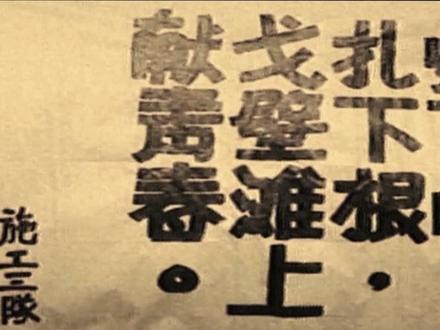 扎下根·
戈壁滩上
献青春。
施工三隊